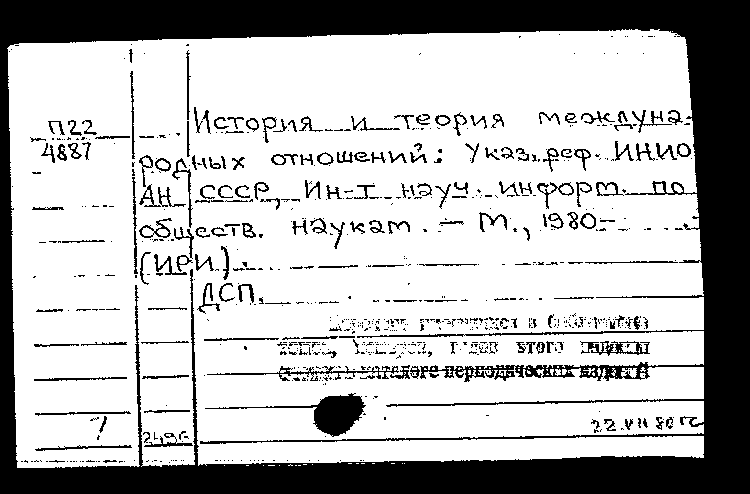 П22
4887
История и теория междуна-
родных отношений: Указ. реф. ИНИОН
АН СССР, Ин-т науч. информ. по
обществ. наукам. — М., 1980—
(ИРИ).
ДСП.
в библиотеке
томов, номеров, годов этого издания
каталоге периодических изданий
7
249с
22.VII 80 гс